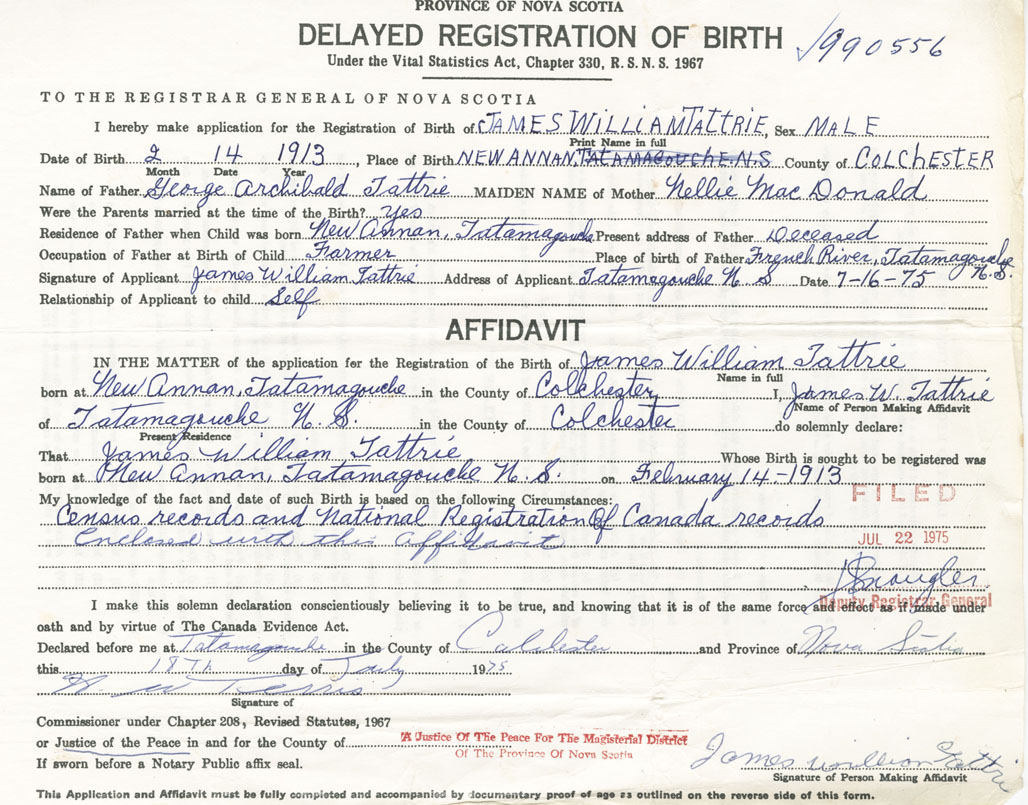 PROVINCE OF NOVA SCOTIA
DELAYED REGISTRATION OF BIRTH 990556
Under the Vital Statistics Act, Chapter 330, R. S. N. S. 1967
TO THE REGISTRAR GENERAL OF NOVA SCOTIA
I hereby make application for the Registration of Birth of JAMES WILLIAM TATTRIE, Sex MALE
Print Name in full
Date of Birth 2 14 1913, Place of Birth NEW ANNAN, TATAMAGOUCHE N.S County of COLCHESTER
Month Date Year
Name of Father George Archibald Tattrie MAIDEN NAME of Mother Nellie Mac Donald
Were the Parents married at the time of the Birth? yes
Residence of Father when Child was born New Annan, Tatamagouche Present address of Father Deceased
Occupation of Father at Birth of Child Farmer Place of birth of Father French River, Tatamagouche N.S.
Signature of Applicant James William Tattrie Address of Applicant Tatamagouche N S Date 7-16-75
Relationship of Applicant to child Self
AFFIDAVIT
IN THE MATTER of the application for the Registration of the Birth of James William Tattrie
Name in full
born at New Annan, Tatamagouche in the County of Colchester I, James W. Tattrie
Name of Person Making Affidavit
of Tatamagouche N. S. in the County of Colchester do solemnly declare:
Present Residence
That James William Tattrie Whose Birth is sought to be registered was
born at New Annan, Tatamagouche N. S. on February 14-1913
FILED
My knowledge of the fact and date of such Birth is based on the following Circumstances:
Census records and National Registration Of Canada records
Enclosed with this affidavit
JUL 22 1975
Deputy Registrar General
I make this solemn declaration conscientiously believing it to be true, and knowing that it is of the same force and effect as if made under
oath and by virtue of The Canada Evidence Act.
Declared before me at Tatamagouche in the County of Colchester and Province of Nova Scotia
this 18TH day of July 1975
Signature of
Commissioner under Chapter 208, Revised Statutes, 1967
or Justice of the Peace in and for the County of A Justice Of The Peace For The Magisterial District
Of The Province Of Nova Scotia
If sworn before a Notary Public affix seal.
James William Tattrie
Signature of Person Making Affidavit
This Application and Affidavit must be fully completed and accompanied by documentary proof of age as outlined on the reverse side of this form.